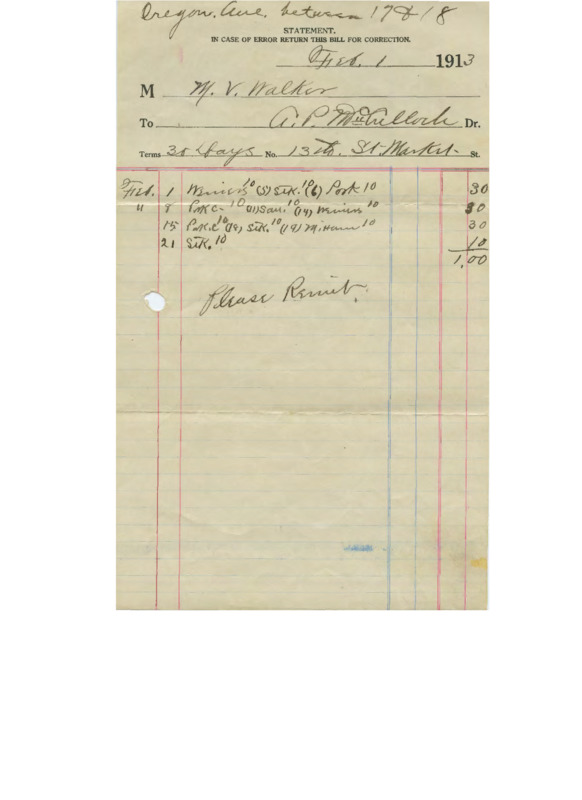 Oregon. Ave. between 17 & 18
STATEMENT.
IN CASE OF ERROR RETURN THIS BILL FOR CORRECTION.
Feb. 1 1913
M M. V. Walker
To A. P. McCulloch Dr.
Terms 30 Days No. 13th. St. Market St.
Feb. 1 Weiners 10 (5) Stk. 10 (6) Pork 10 30
" 8 Pork C. 10 (11) Sau. 10 (14) Weiners 10 30
15 Pork C. 10 (18) Stk. 10 (19) M. Ham 10 30
21 Stk. 10 10
1,00
Please Remit.